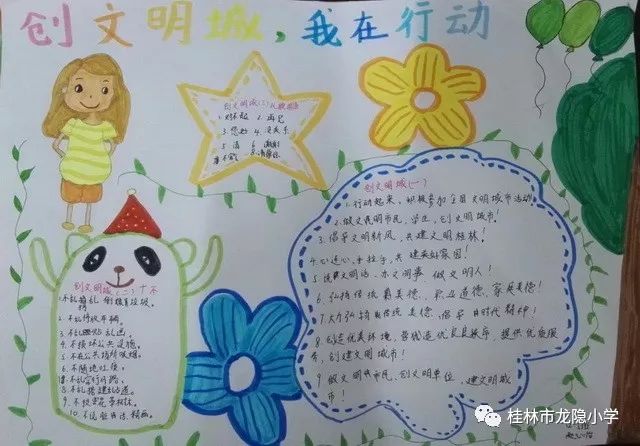 创文明城，我在行动
创文明城(三)礼貌用语
1.对不起 2.再见
3.您好 4.没关系
5.请 6.谢谢
创文明城(一)
1.行动起来，积极参加全国文明城市活动!
2.做文明市民，学生，创文明城市!
3.倡导文明新风，共建文明桂林!
4.心连心，手拉手，共建美好家园!
5.说文明话，办文明事，做文明人!
6.弘扬传统美德、职业道德、家庭美德!
7.大力弘扬传统美德，倡导时代精神!
8.创造优美环境，营造优良秩序，提供优质服
务，创建文明城市!
9.做文明市民、创文明单位，建文明城
市!
创文明城(二)十不
1.不乱扔乱倒垃圾。
2.不乱停放车辆。
3.不乱贴乱画。
4.不损坏公共设施。
5.不在公共场所吸烟。
6.不随地吐痰。
8.不乱搭建
10.不说脏话
桂林市龙隐小学